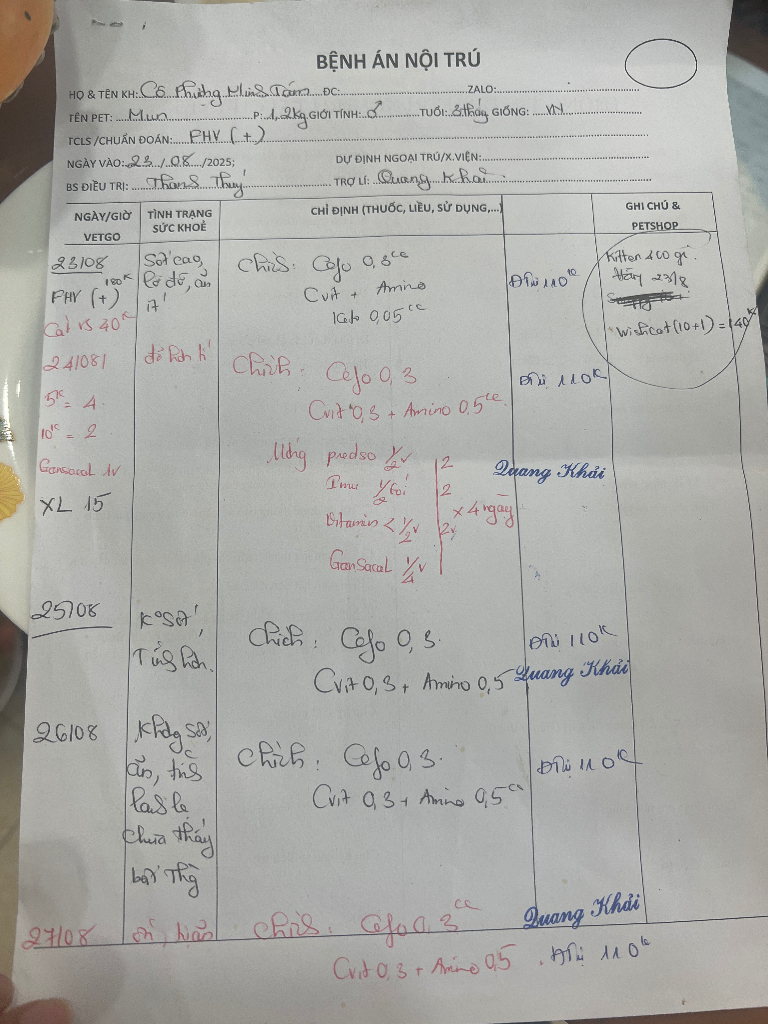 BỆNH ÁN NỘI TRÚ
HỌ & TÊN KH: Cô Phượng Minh Tâm ĐC: ZALO:
TÊN PET: Mun P: 1,2kg GIỚI TÍNH: ♂ TUỔI: 3 tháng GIỐNG: VN
TCLS /CHUẨN ĐOÁN: FHV (+)
NGÀY VÀO: 23 / 08 /2025; DỰ ĐỊNH NGOẠI TRÚ/X.VIỆN:
BS ĐIỀU TRỊ: Thanh Thuý TRỢ LÍ: Quang Khải
NGÀY/GIỜ VETGO
TÌNH TRẠNG SỨC KHOẺ
CHỈ ĐỊNH (THUỐC, LIỀU, SỬ DỤNG,...)
GHI CHÚ & PETSHOP
23/08
180K
FHV (+)
Cát vs 40K
Sốt cao,
lờ đờ, ăn
ít
Chích: Cefo 0,3cc
Cvit + Amino
Keto 0,05cc
Đtrị 110K
Kitten 400g
23/8
Wishcat (10+1) = 140K
24/08
5K = 4
10K = 2
Gansacal 1v
XL 15
đỡ hơn tí
Chích: Cefo 0,3
Cvit 0,3 + Amino 0,5cc
Đtrị 110K
Uống predso 1/2v 2
Imu 1/2 gói 2
Vitamin C 1/2v 2v
x 4 ngày
Gansacal 1/4v
Quang Khải
25/08
K° sốt,
Tỉnh hơn.
Chích: Cefo 0,3.
Cvit 0,3 + Amino 0,5
Đtrị 110K
Quang Khải
26/08
Không sốt,
ăn, tỉnh
lanh lẹ
chưa thấy
bất thg
Chích: Cefo 0,3.
Cvit 0,3 + Amino 0,5cc
Đtrị 110K
Quang Khải
27/08
Chích: Cefo 0,3cc
Cvit 0,3 + Amino 0,5. Đtrị 110K